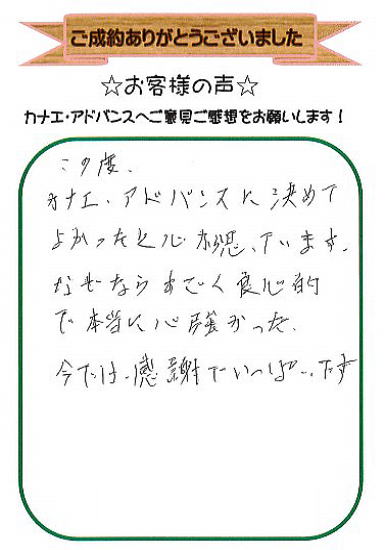 ご成約ありがとうございました
☆お客様の声☆
カナエ・アドバンスへご意見ご感想をお願いします！
この度、
カナエ・アドバンスに決めて
よかったと心から思っています。
なぜならすごく良心的
で本当に心強かった。
今では、感謝でいっぱいです